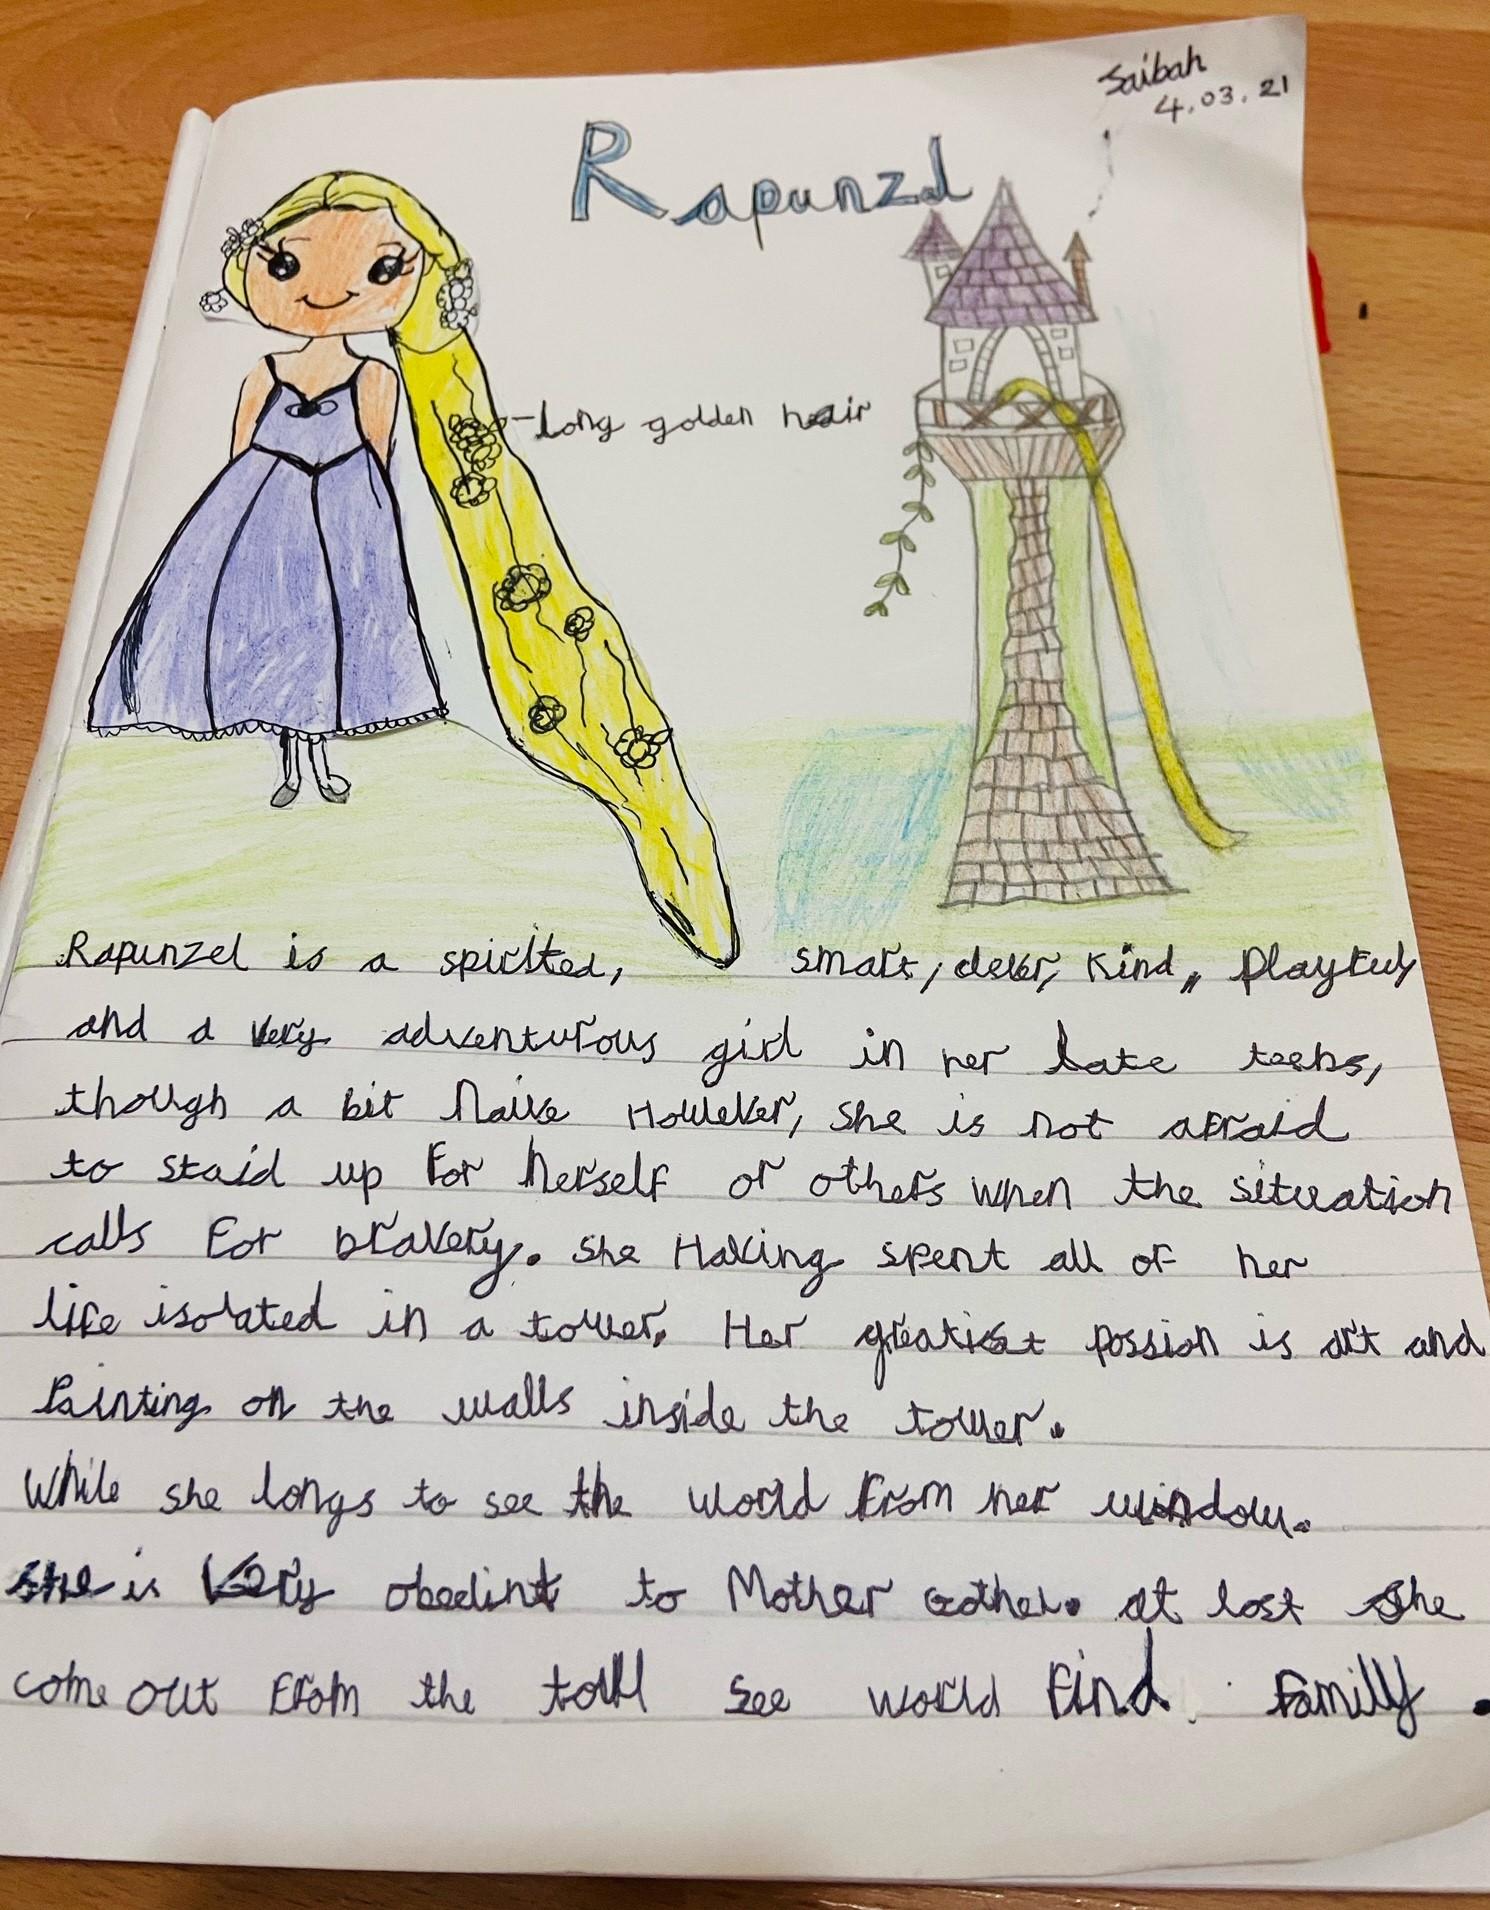 Saibah
4.03.21
Rapunzel
long golden hair
Rapunzel is a spirited, smart, clever, kind, playful
and a very adventurous girl in her late teens,
though a bit naive However, she is not afraid
to staid up for herself or others when the situation
calls for bravery. She Having spent all of her
life isolated in a tower. Her greatist possion is art and
Painting on the walls inside the tower.
While she longs to see the world from her window.
she is very obedint to Mother Gothel. at lost she
come out from the see world find familly.